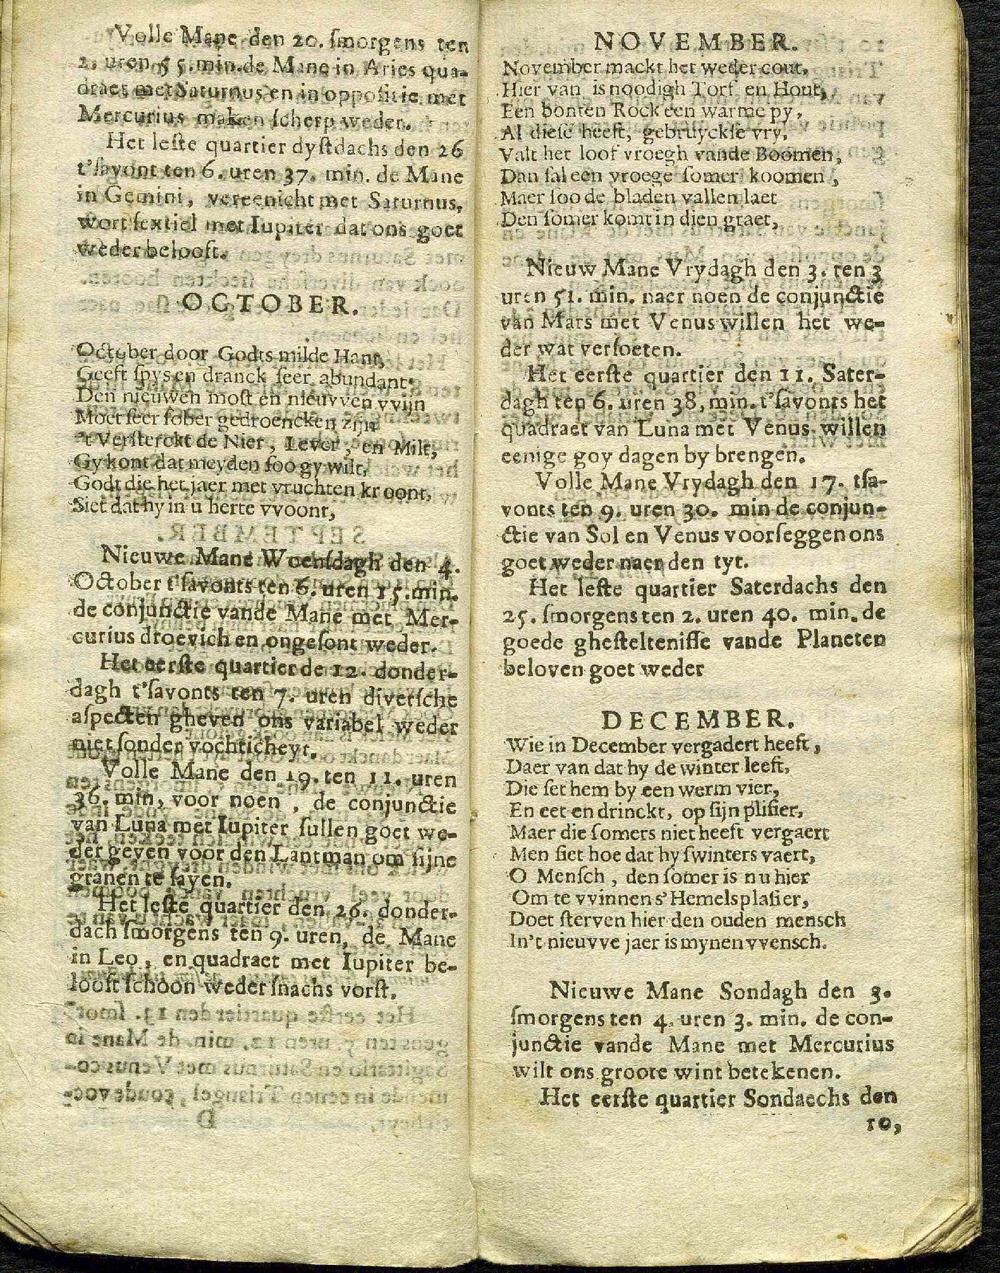 Volle Mane den 20. ſmorgens ten
2. uren 55. min. de Mane in Aries qua-
draet met Saturnus en in oppoſitie met
Mercurius maken ſcherp weder.
Het leſte quartier dyſtdachs den 26
t'ſavont ten 6. uren 37. min. de Mane
in Gemini, vereenicht met Saturnus,
wort ſextiel met Iupiter dat ons goet
weder belooft.
OCTOBER.
October door Godts milde Hant,
Geeft ſpys en dranck ſeer abundant,
Den nieuwen moſt en nieuvven vvijn
Moet ſeer ſober gedroencken zijn
't Verſterckt de Nier, Lever, en Milt,
Gy kont dat meyden ſoo gy wilt,
Godt die het jaer met vruchten kroont,
Siet dat hy in u herte vvoont,
Nieuwe Mane Woenſdagh den 4.
October t'ſavonts ten 6. uren 15. min.
de conjunctie vande Mane met Mer-
curius droevich en ongeſont weder.
Het eerſte quartier de 12. donder-
dagh t'ſavonts ten 7. uren diverſche
aſpecten gheven ons variabel weder
niet ſonder vochticheyt.
Volle Mane den 19. ten 11. uren
36. min, voor noen, de conjunctie
van Luna met Iupiter ſullen goet we-
der geven voor den Lantman om ſijne
granen te ſayen.
Het leſte quartier den 26. donder-
dach ſmorgens ten 9. uren, de Mane
in Leo, en quadraet met Iupiter be-
looft ſchoon weder ſnachs vorſt.
D
NOVEMBER.
November mackt het weder cout,
Hier van is noodigh Torf en Hout,
Een bonten Rock een warme py,
Al dieſe heeft, gebruyckſe vry,
Valt het loof vroegh vande Boomen,
Dan ſal een vroege ſomer koomen,
Maer ſoo de bladen vallen laet
Den ſomer komt in dien graet,
Nieuw Mane Vrydagh den 3. ten 3
uren 51. min. naer noen de conjunctie
van Mars met Venus willen het we-
der wat verſoeten.
Het eerſte quartier den 11. Sater-
dagh ten 6. uren 38, min. t'ſavonts het
quadraet van Luna met Venus willen
eenige goy dagen by brengen.
Volle Mane Vrydagh den 17. tſa-
vonts ten 9. uren 30. min de conjun-
ctie van Sol en Venus voorſeggen ons
goet weder naer den tyt.
Het leſte quartier Saterdachs den
25. ſmorgens ten 2. uren 40. min. de
goede gheſtelteniſſe vande Planeten
beloven goet weder
DECEMBER.
Wie in December vergadert heeft,
Daer van dat hy de winter leeft,
Die ſet hem by een werm vier,
En eet en drinckt, op ſijn pliſier,
Maer die ſomers niet heeft vergaert
Men ſiet hoe dat hy ſwinters vaert,
O Menſch, den ſomer is nu hier
Om te vvinnen s'Hemels plaſier,
Doet ſterven hier den ouden mensch
In't nieuvve jaer is mynen vvensch.
Nieuwe Mane Sondagh den 3.
ſmorgens ten 4. uren 3. min. de con-
junctie vande Mane met Mercurius
wilt ons groote wint betekenen.
Het eerſte quartier Sondaechs den
10,